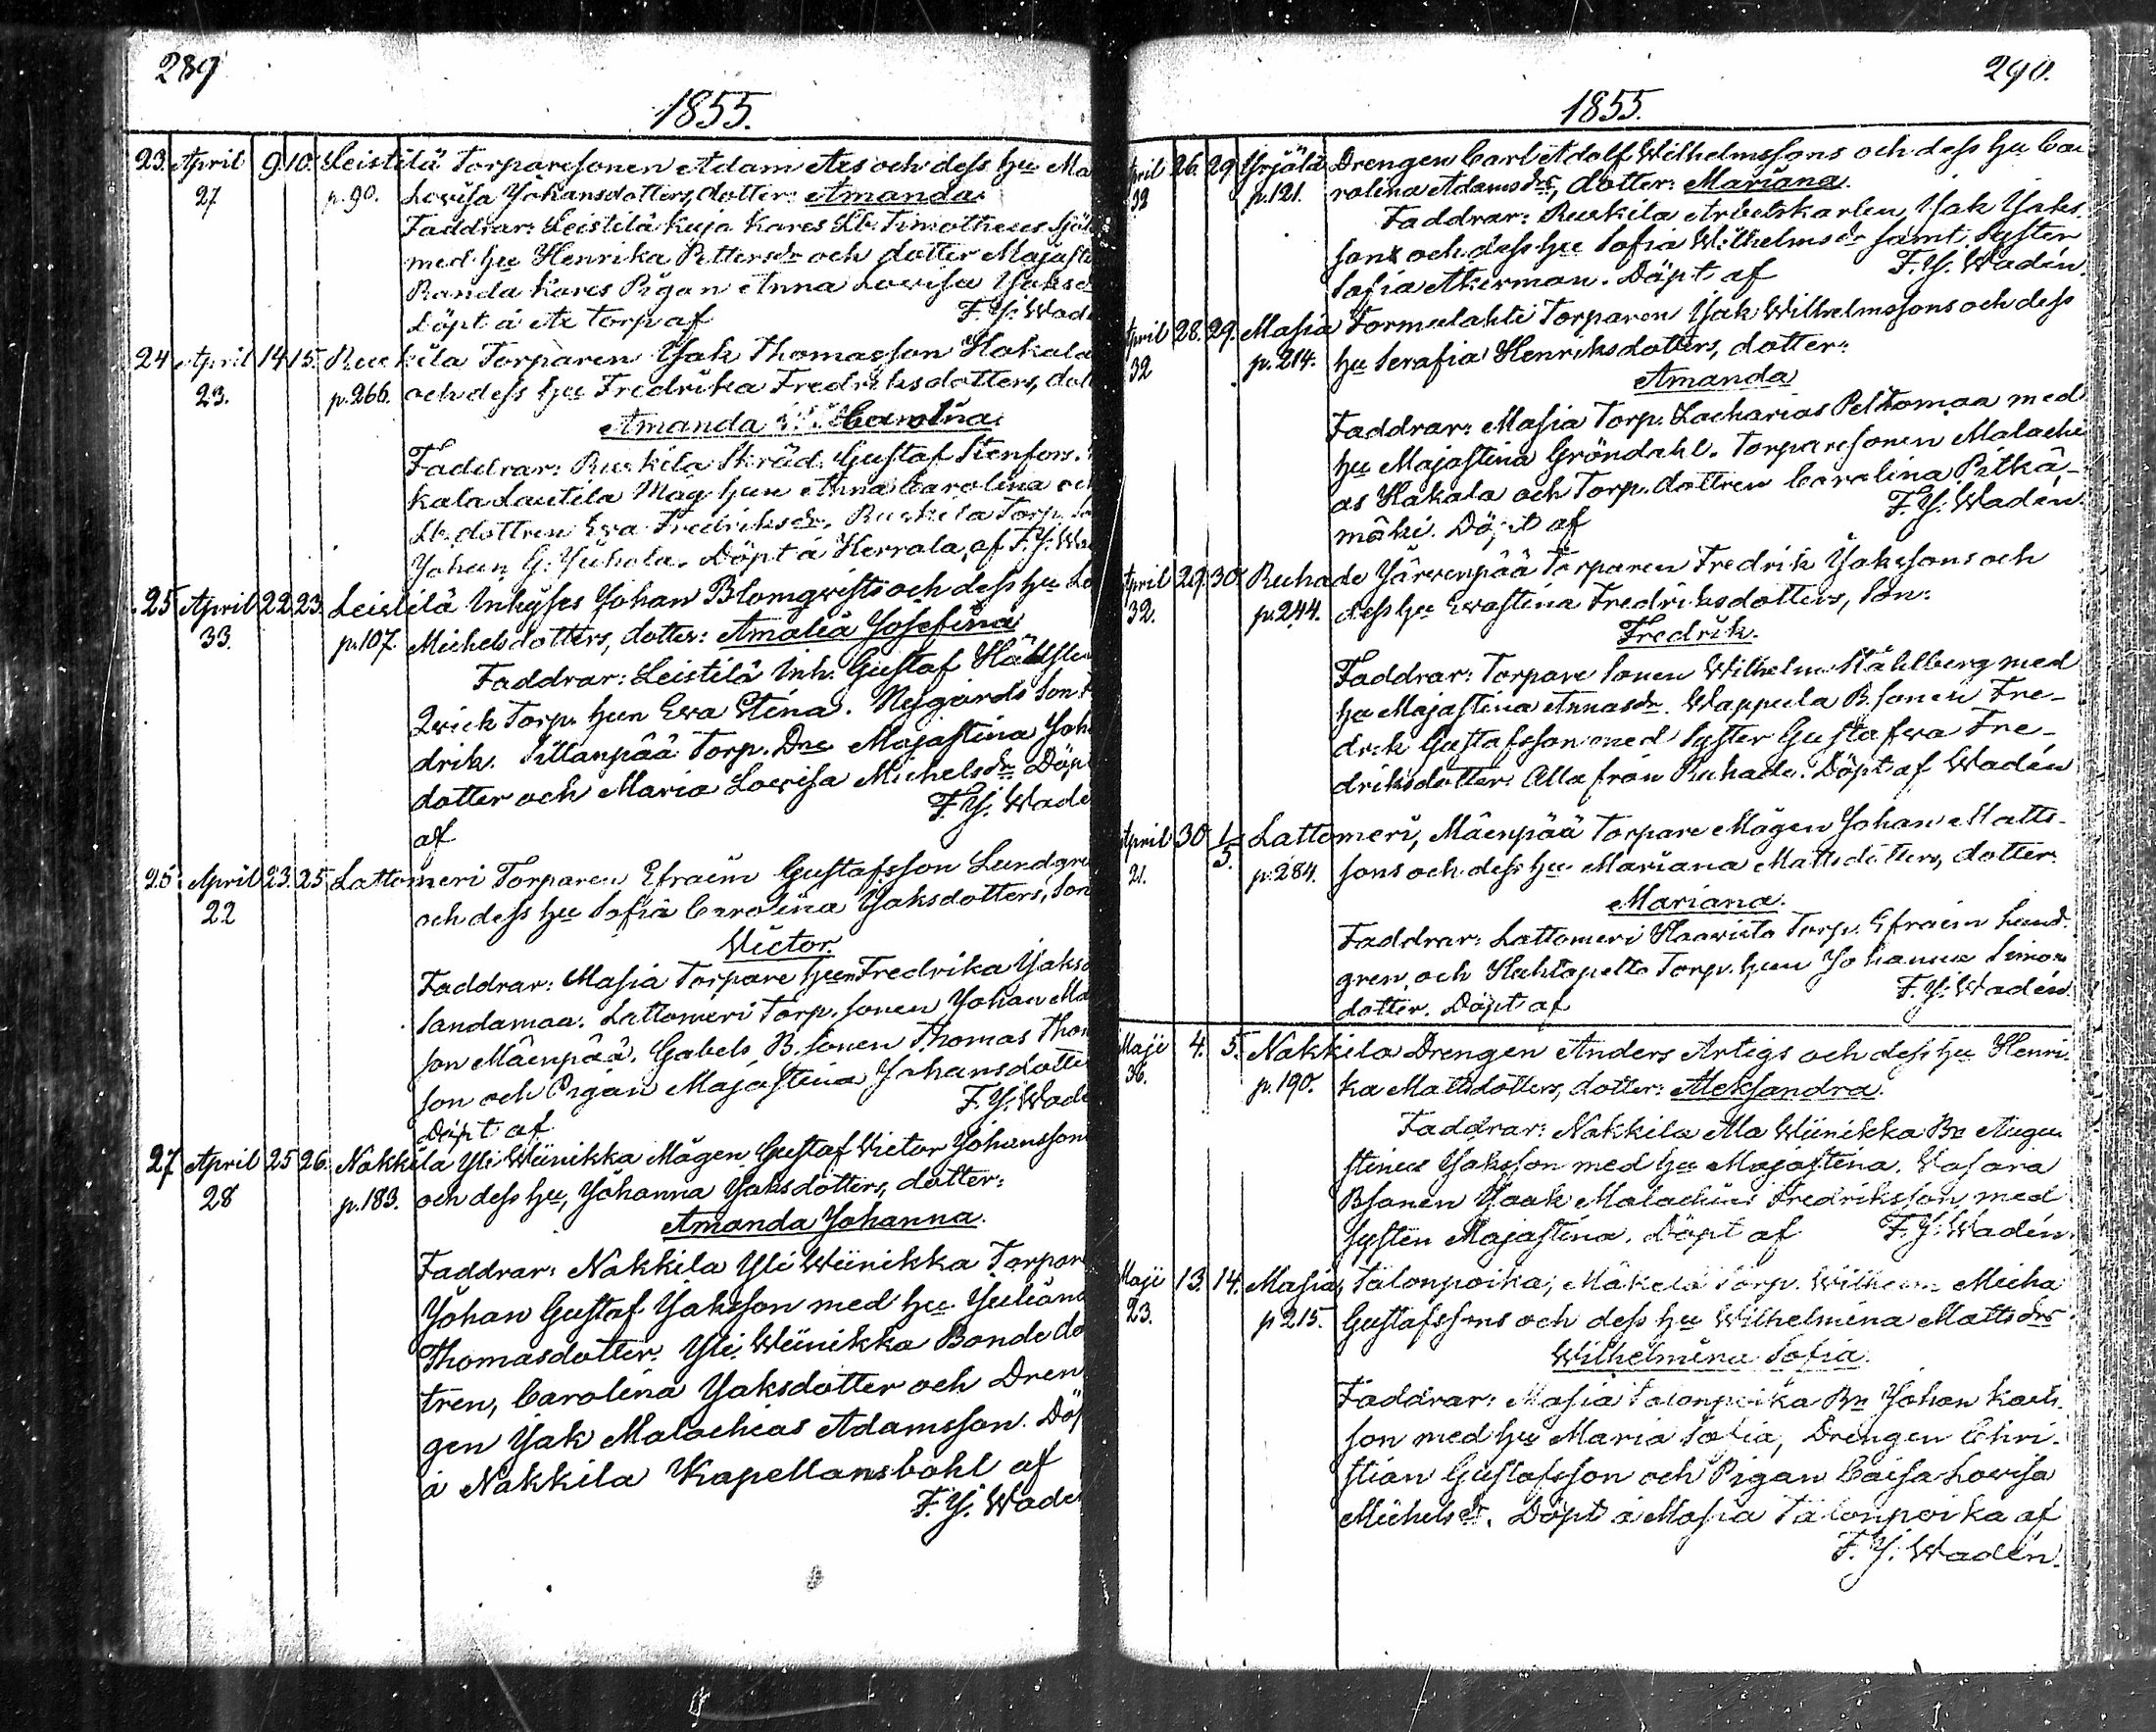 289
1855.
23. April 9. 10. Leistilä Torparesonen Adam Ars och dess hu Ma
27 p. 90. Lovisa Johansdotters, dotter: Amanda.
Faddrar: Leistilä Kuja Kares Timotheus
med hu Henrika Pettersdr och dotter Majasti
Randa Kares Pigan Anna Lovisa Jaksd
Döpt å torp af F. J. Wade
24 April 14 15. Ruskila Torparen Isak Thomasson Hakala
23. p. 266. och dess hu Fredrika Fredriksdotters, dott
Amanda Carolina.
Faddrar: Ruskila Skräd. Gustaf Stenfors.
kala Lautila Måg hun Anna Carolina och
dottren Eva Fredriksdr. Ruskila Torp. So
Johan G. Juhola. Döpt å Herrala, af F. J. Wa
25 April 22 23. Leistilä Inhyses Johan Blomqvists och dess hu Lo
33. p. 107. Michelsdotters, dotter: Amalia Josefina
Faddrar: Leistilä Inh. Gustaf
Qvick Torp. hun Eva Stina. Nygårds Son
drik. Sillanpää Torp. Dne Majastina Joh
dotter och Maria Lovisa Michelsdr. Döpt
af F. J. Wade
26 April 23. 25 Lattomeri Torparen Efraim Gustafsson Lundgre
22 och dess hu Sofia Carolina Jaksdotters, Son
Victor.
Faddrar: Masia Torpare hun Fredrika Jaksd
Sandamaa. Lattomeri Torp. sonen Johan Ma
son Mäenpää. Gabels B. sonen Thomas Thom
son och Pigan Majastina Johansdotte
Döpt af F. J. Wade
27 April 25 26. Nakkila Yli Wiinikka Mågen Gustaf Victor Johansson
28 p. 183. och dess hu, Johanna Jaksdotters, dotter:
Amanda Johanna.
Faddrar: Nakkila Yli Wiinikka Torpar
Johan Gustaf Jaksson med hu Juliana
Thomasdotter. Yli Wiinikka Bonde do
tren, Carolina Jaksdotter och Dren
gen Isak Malachias Adamsson. Döp
å Nakkila Kapellansbohl af
F. J. Wade
290.
1855.
pril 26. 29 Yrjälä Drengen Carl Adolf Wilhelmssons och dess hu Ca
32 p. 121. rolina Adamsdrs, dotter: Mariana.
Faddrar: Ruskila Arbetskarlen, Isak Isaks
sons och dess hu Sofia Wilhelmsdr samt Syster
Sofia Akerman. Döpt af F. J. Wadén.
April 28. 29. Masia Tormulahti Torparen Isak Wilhelmssons och dess
32 p. 214. hu Serafia Henriksdotters, dotter:
Amanda
Faddrar: Masia Torp. Zacharias Peltomaa med
hu Majastina Gröndahl. Torparesonen Malachi
as Hakala och Torp. dottren Carolina Pitkä-
mäki. Döpt af F. J. Wadén
April 29. 30. Ruhade Järvenpää Torparen Fredrik Jakssons och
32. p. 244. dess hu Evastina Fredriksdotters, Son:
Fredrik.
Faddrar: Torpare Sonen Wilhelm Ståhlberg med
hu Majastina Annasdr. Wappula B. Sonen Fre-
drik Gustafsson med Syster Gustafva Fre-
driksdotter. Alla från Ruhade. Döpt af Wadén
April 30 1/5. Lattomeri, Mäenpää Torpare Mågen Johan Matts-
21. p. 284. sons och dess hu Mariana Mattsdotters, dotter:
Mariana.
Faddrar: Lattomeri Haavisto Torp. Efraim Lund-
gren, och Huhtapelto Torp. hun Johanna Simons
dotter. Döpt af F. J. Wadén.
Maji 4. 5. Nakkila Drengen Anders Artigs och dess hu Henri-
36. p. 190. ka Mattsdotters, dotter: Aleksandra.
Faddrar: Nakkila Ala Wiinikka Bn Augu
stinus Jaksson med hu Majastina. Vasara
Bsonen Isaak Malachias Fredriksson med
Systen Majastina. Döpt af F. J. Wadén
Maji 13. 14. Masia, Talonpoika, Mäkelä Torp. Wilhelm Micha
23. p. 215. Gustafssons och dess hu Wilhelmina Mattsdrs
Wilhelmina Sofia.
Faddrar: Masia Talonpoika Bn Johan Karls-
son med hu Maria Sofia, Drengen Chri-
stian Gustafsson och Pigan Caisa Lovisa
Michelsdr. Döpt å Masia Talonpoika af
F. J. Wadén.